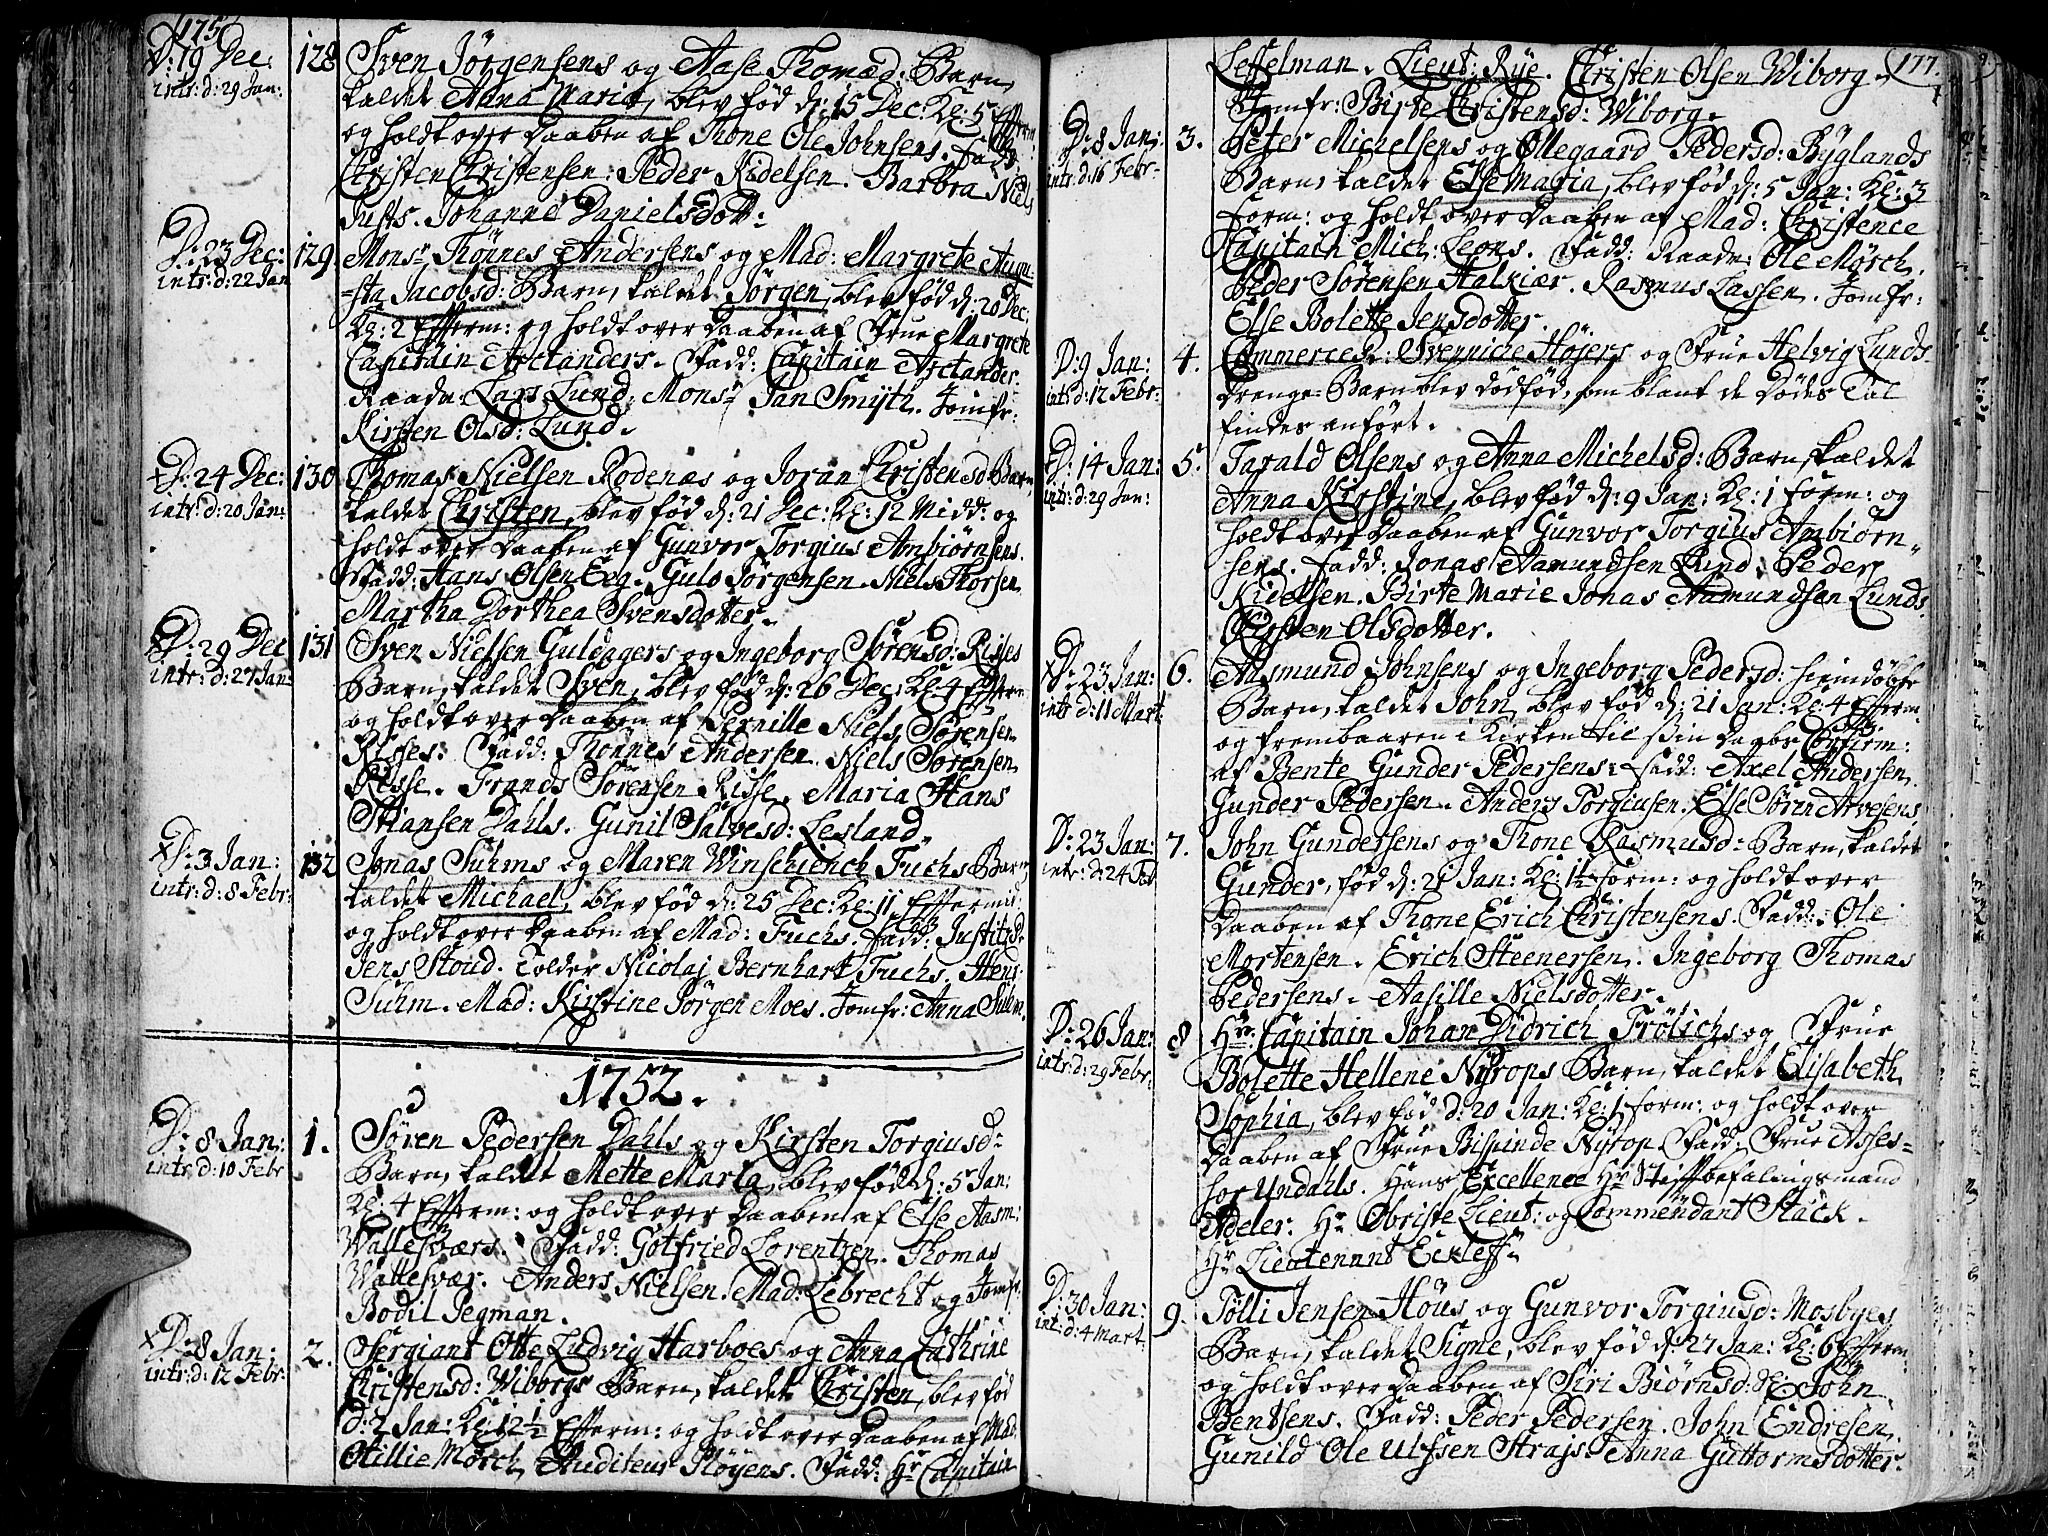 175
D: 19 Dec:
intr: d: 29 Jan:
128 Sven Jörgensens og Aase Thomæd: Barn,
kaldet Anna Maria, blev fød d: 15 Dec: Kl: 5 Efterm:
og holdt over Daaben af Thone Ole Johnsens. Fadd:
Christen Christensen: Peder Kidelsen. Barbra Niels
Justs. Johanne Danielsdott:
D: 23 Dec:
intr: d: 22 Jan
129 Monsr Thönnes Andersens og Mad: Margrete Augu-
sta Jacobsd: Barn, kaldet Jörgen, blev fød d: 20 Dec:
Kl: 2 Efterm: og holdt over Daaben af Frue Margrete
Capitain Arctanders. Fadd: Capitain Arctander.
Raadm: Lars Lund. Monsr Jan Smÿth. Jomfr:
Kirsten Olsd: Lund.
D: 24 Dec:
intr: d: 20 Jan:
130 Thomas Nielsen Rodenæs og Joran Christensd: Barn,
kaldet Christen, blev fød d: 21 Dec: Kl: 12 Midd: og
holdt over Daaben af Gunvor Torgius Ambiörnsens.
Fadd: Hans Olsen Eeg. Gulo Jörgensen. Niels Thorsen.
Martha Dorthea Svensdotter.
D: 29 Dec
intr: d: 27 Jan:
131 Sven Nielsen Guldagers og Ingeborg Sörensd: Risses
Barn, kaldet Sven, blev fød d: 26 Dec: Kl: 4 Efterm:
og holdt over Daaben af Pernille Niels Sörensen
Risses. Fadd: Thönnes Andersen. Niels Sörensen
Risse. Frands Sörensen Risse. Maria Hans
Stiansen Dahls. Gunil Salvesd: Lesland.
D: 3 Jan:
intr: d: 8 Febr:
132 Jonas Suhms og Maren Winschiench Fuchs Barn,
kaldet Michael, blev fød d: 25 Dec: Kl: 11 Eftermid:
og holdt over Daaben af Mad: Fuchs. Fadd: Justitzr:
Jens Stoud. Tolder Nicolaj Bernhart Fuchs. Hens
Suhm. Mad: Kirstine Jörgen Moes. Jomfr: Anna Suhm.
1752.
D: 8 Jan:
intr: d: 10 Febr
1. Sören Pedersen Dahls og Kirsten Torgiusd:
Barn, kaldet Mette Marta, blev fød d: 5 Jan:
Kl: 4 Efterm: og holdt over Daaben af Else Aasm:
Wattesværs. Fadd: Gotfried Lorentzen. Thomas
Wattesvær. Anders Nielsen. Mad: Lebrecht og Jomfr:
Bodil Pegman.
D: 8 Jan:
intr: d: 12 Febr:
2. Sergiant Otte Ludvig Harboes og Anna Cathrine
Christensd: Wiborgs Barn, kaldet Christen, blev fød
d: 2 Jan: Kl: 12½ Efterm: og holdt over Daaben af Mad:
Ottillie Mörch, Auditeur Plöyens. Fadd: Hr Capitain
177.
Lesselman. Lieut: Rÿe. Christen Olsen Wiborg.
Jomfr: Birte Christensd: Wiborg.
D: 8 Jan:
intr: d: 16 Febr.
3. Peter Michelsens og Øllegaard Pedersd: Byglands
Barn, kaldet Else Maria, blev fød d: 5 Jan: Kl: 3
Form: og holdt over Daaben af Mad: Christence
Capitain Mich: Leons. Fadd: Raadm: Ole Mörch.
Peder Sörensen Halkiær. Rasmus Lassen. Jomfr:
Else Bolette Jensdotter.
D: 9 Jan:
intr: d: 12 Febr:
4. CommerceR: Svenniche Höyers og Frue Helvig Lunds
Drenge-Barn blev dödfød, som blant de Dödes Tal
findes anfört.
D: 14 Jan:
intr: d: 29 Jan:
5. Tarald Olsens og Anna Michelsd: Barn, kaldet
Anna Kirstine, blev fød d: 9 Jan: Kl: 1 Form: og
holdt over Daaben af Gunvor Torgius Ambiörn-
sens. Fadd: Jonas Aamundsen Lund. Peder
Kidelsen. Birte Marie Jonas Aamundsen Lunds.
Kirsten Olsdotter.
D: 23 Jan:
intr: d: 11 Mart:
6. Aasmund Johnsens og Ingeborg Pedersd: hiemdöbte
Barn, kaldet John, blev fød d: 21 Jan: Kl: 4 Efterm:
og frembaaren i Kirken til sin Daabs Confirm:
af Bente Gunder Pedersens: Fadd: Axel Andersen.
Gunder Pedersen. Anders Torgiusen. Else Sören Arvesens.
D: 23 Jan:
intr: d: 24 Feb
7. John Gundersens og Thone Rasmusd: Barn, kaldet
Gunder, fød d: 21 Jan: Kl: 1½ Form: og holdt over
Daaben af Thone Erich Christensens. Fadd: Ole
Mortensen. Erich Steenersen. Ingeborg Thomas
Pedersens. Aasille Nielsdotter.
D: 26 Jan:
intr: d: 29 Febr:
8 Hr: Capitain Johan Didrich Frölichs og Frue
Bolette Hellene Nyrops Barn, kaldet Elisabeth
Sophia, blev fød d: 20 Jan: Kl: 1 Form: og holdt over
Daaben af Frue Bispinde Nyrop. Fadd: Frue Asses-
sor Undahls. Hans Excellence Hr Stiftbefalingsmand
Adeler. Hr Obriste Lieut: og Commendant Stack.
Hr Lieutenant Eckleff.
D: 30 Jan:
int: d: 4 Mart.
9. Tölli Jensen Höus og Gunvor Torgiusd: Mosbyes
Barn, kaldet Signe, blev fød d: 27 Jan: Kl: 6 Efterm:
og holdt over Daaben af Siri Biörnsd: John
Bentsens. Fadd: Peder Pedersen. John Endresen.
Gunild Ole Ulfssen Strajs. Anna Guttormsdotter.